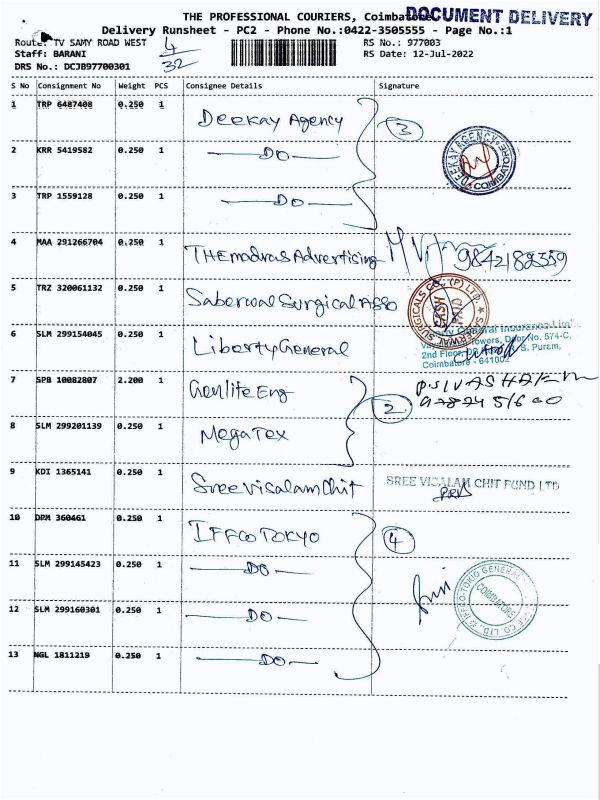 THE PROFESSIONAL COURIERS, Coimbatore
DOCUMENT DELIVERY
Delivery Runsheet - PC2 - Phone No.:0422-3505555 - Page No.:1
Route: TV SAMY ROAD WEST 4/32 RS No.: 977003
Staff: BARANI RS Date: 12-Jul-2022
DRS No.: DCJB97700301
S No Consignment No Weight PCS Consignee Details Signature
1 TRP 6487408 0.250 1 Deekay Agency 3
2 KRR 5419582 0.250 1 — DO — DEEKAY AGENCY COIMBATORE
3 TRP 1559128 0.250 1 — DO —
4 MAA 291266704 0.250 1 THE madras Advertising 9842182559
5 TRZ 320061132 0.250 1 Saberwal Surgical Asso SURGICALS CO., (P) LTD.
6 SLM 299154045 0.250 1 Liberty General General Insurance Limi
Towers, Door No. 574-C,
2nd Floor, S. Puram,
Coimbatore - 641002
7 SPB 10082807 2.200 1 Genlite Eng 2
8 SLM 299201139 0.250 1 Mega Tex
9 KDI 1365141 0.250 1 Sree Visalam Chit SREE VISALAM CHIT FUND LTD
10 DPM 360461 0.250 1 IFFCO TOKYO 4
11 SLM 299145423 0.250 1 — DO — IFFCO-TOKIO GENERAL COIMBATORE
12 SLM 299160301 0.250 1 — DO —
13 NGL 1811219 0.250 1 — DO —